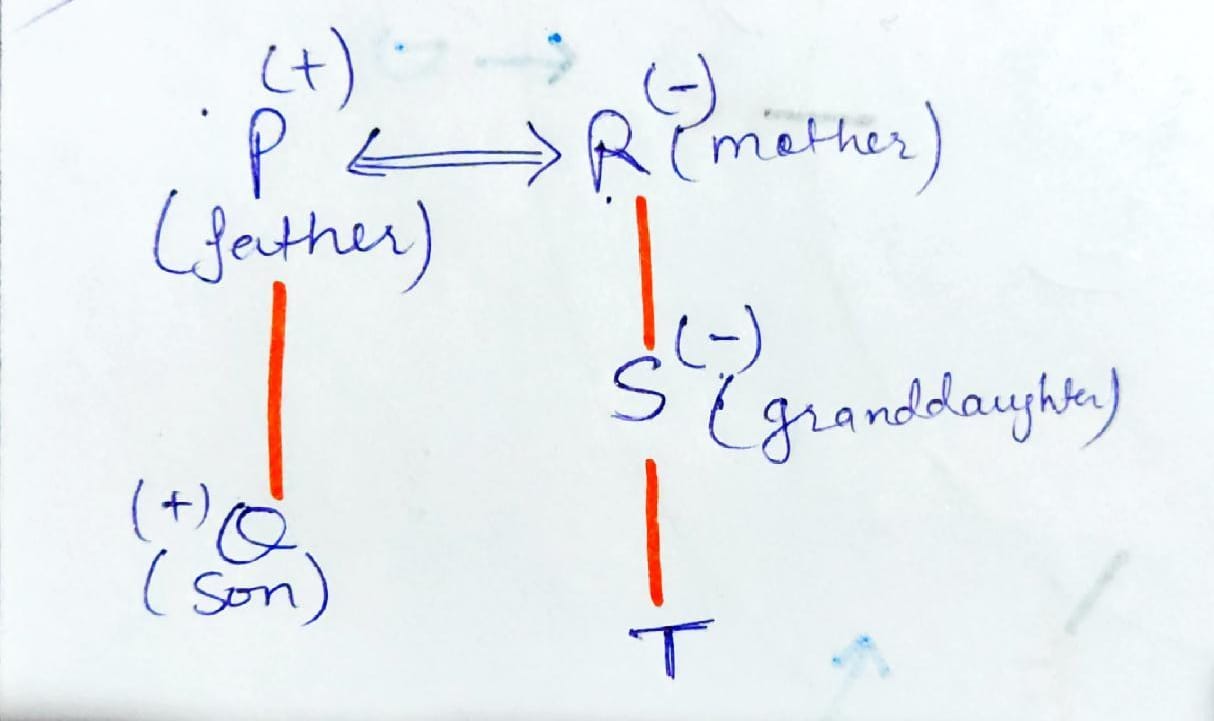 (+) (-)
P ⟺ R (mother)
(father)
(-)
S (granddaughter)
(+) Q
(son)
T